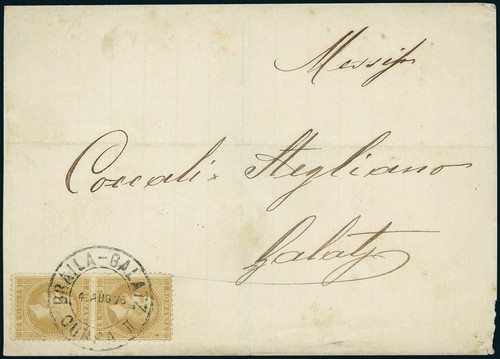 Messrs
Coccali & Stegliano
Galatz
BRAILA-GALATZ
AUG 75
CURSA II